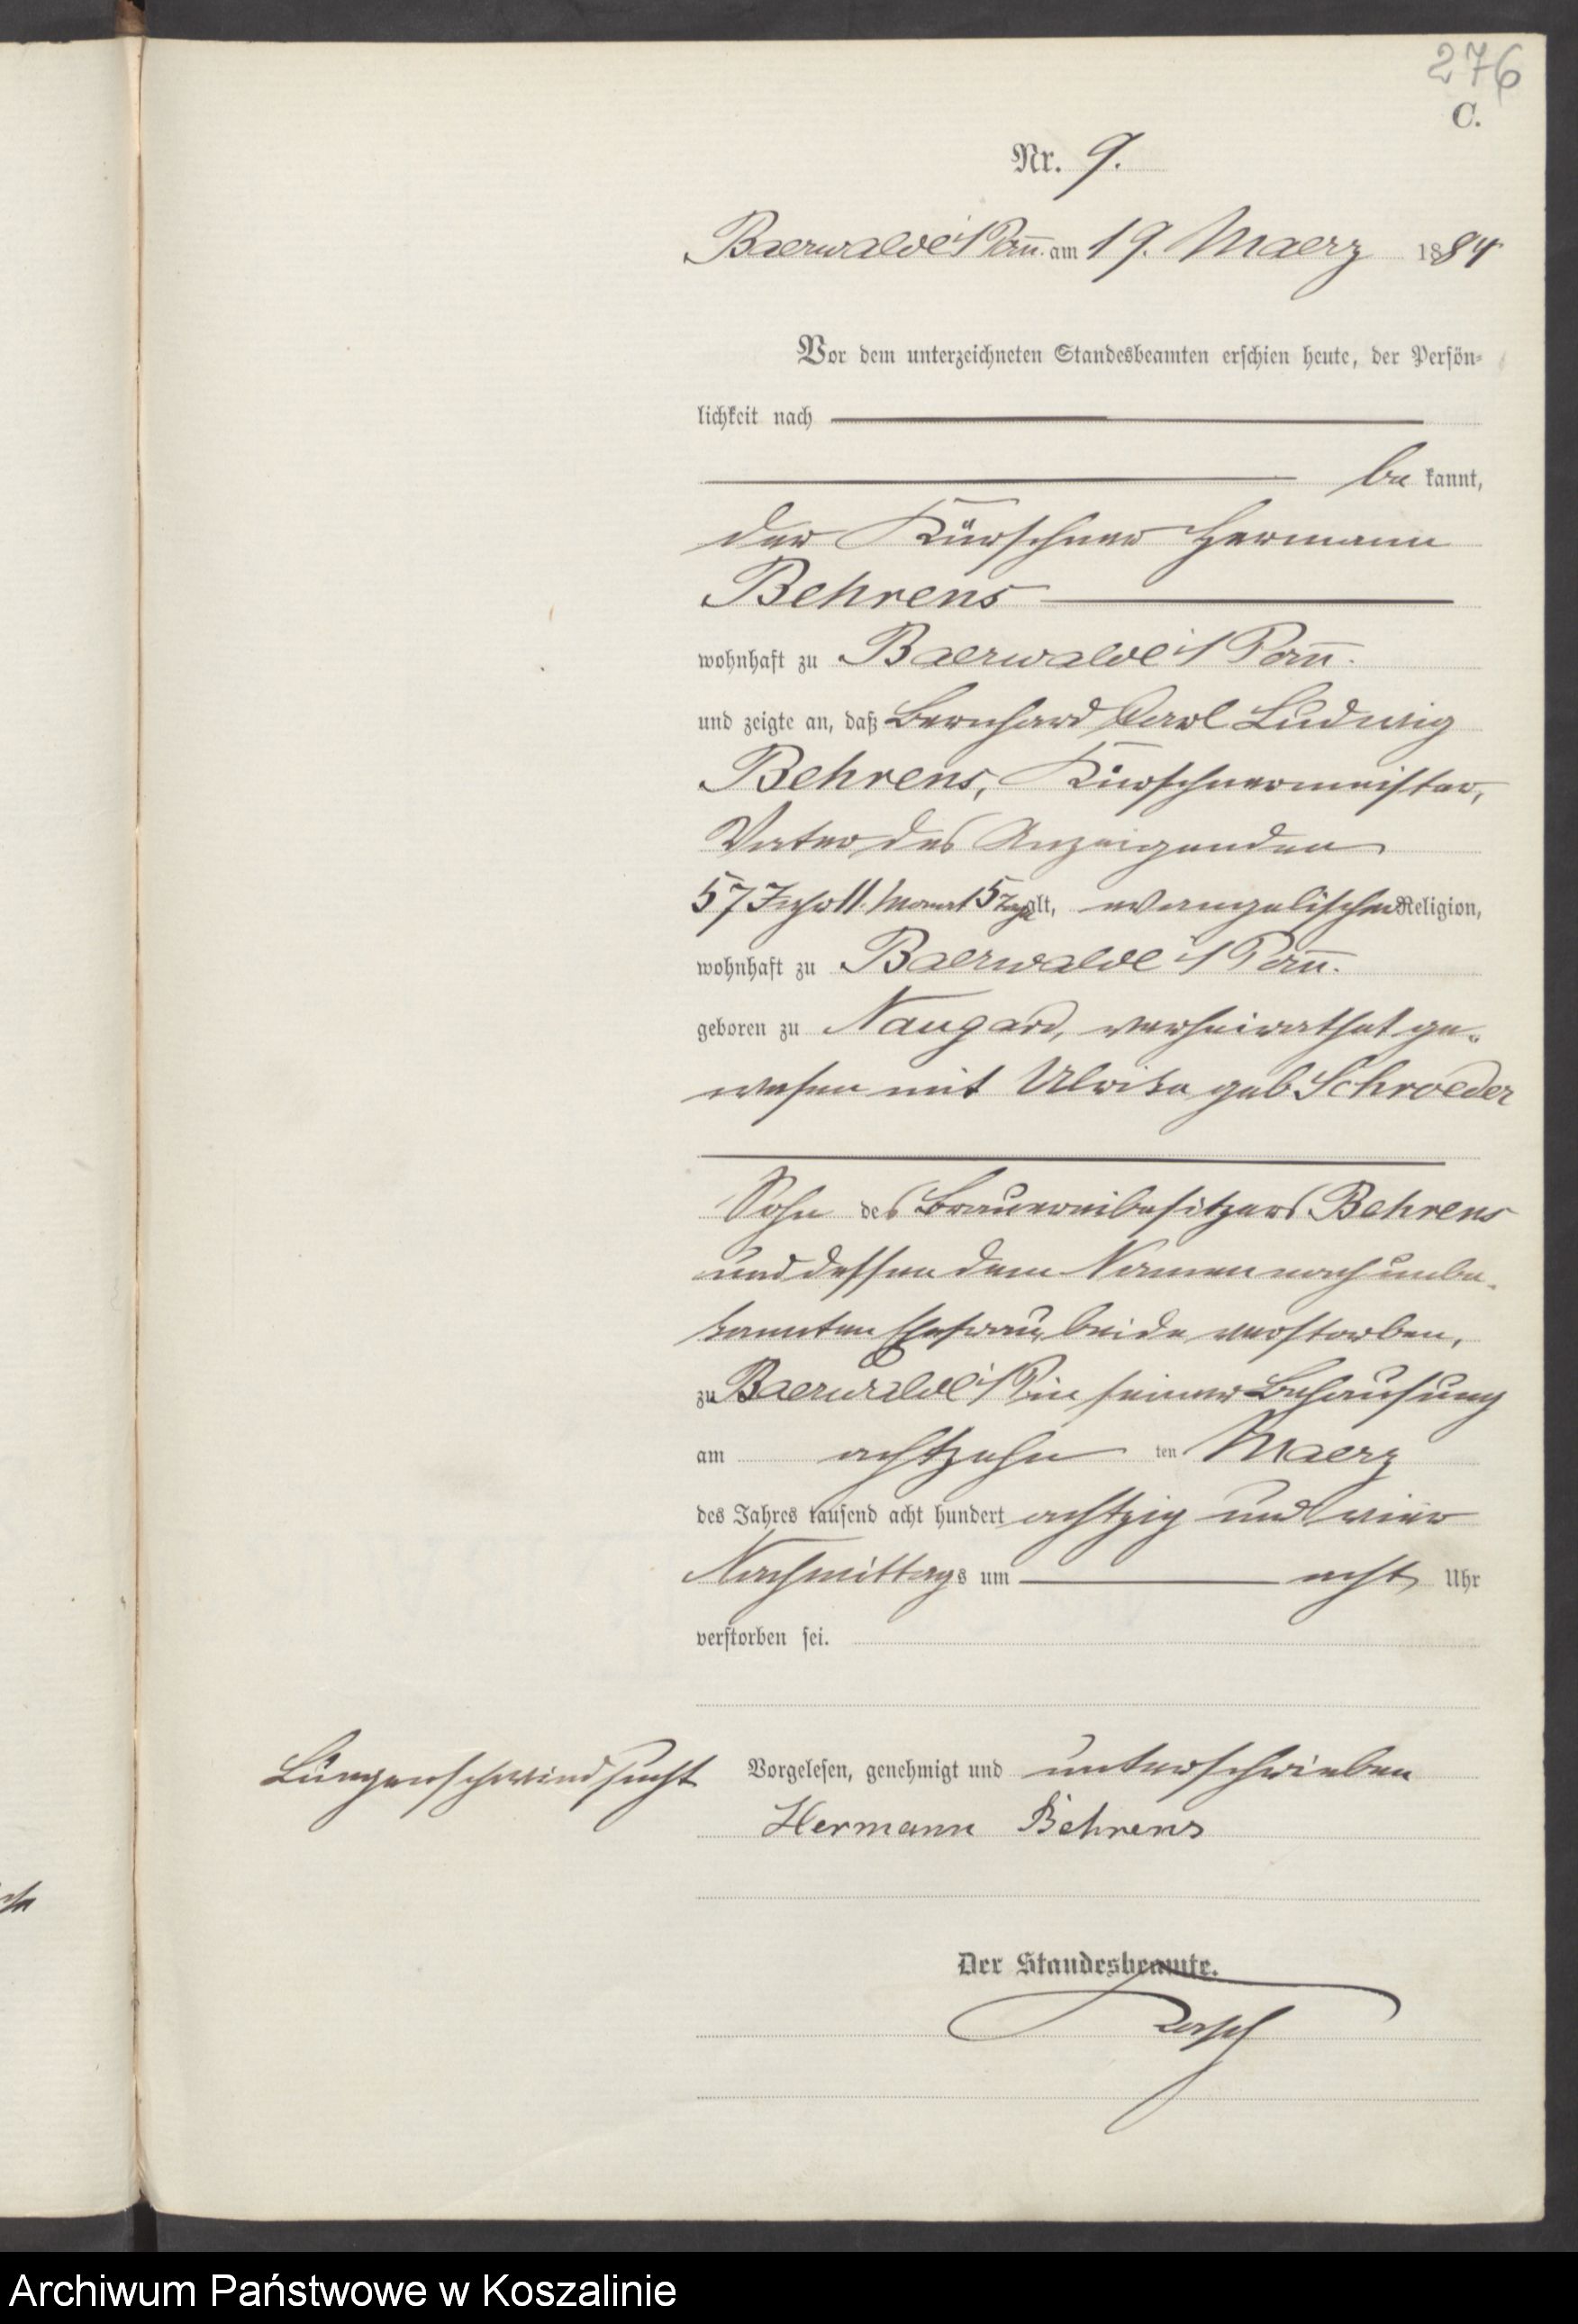 276
C.
Nr. 9.
Baerwalde i/ Pom. am 19. Maerz 1884
Vor dem unterzeichneten Standesbeamten erschien heute, der Persön-
lichkeit nach
be kannt,
der Kürschner Hermann
Behrens
wohnhaft zu Baerwalde i/ Pom.
und zeigte an, daß Bernhard Carl Ludwig
Behrens, Kürschnermeister,
Vater des Anzeigenden
57 Jahr 11 Monat 5 Tage alt, evangelischer Religion,
wohnhaft zu Baerwalde i/ Pom.
geboren zu Naugard, verheirathet ge-
wesen mit Ulrike geb Schroeder
Sohn des Brauereibesitzers Behrens
und dessen dem Namen nach unbe-
kannten Ehefrau, beide verstorben,
zu Baerwalde i/ P in seiner Behausung
am achtzehn ten Maerz
des Jahres tausend acht hundert achtzig und vier
Nachmittags um acht Uhr
verstorben sei.
Lungenschwindsucht
Vorgelesen, genehmigt und unterschrieben
Hermann Behrens
Der Standesbeamte.
Archiwum Państwowe w Koszalinie